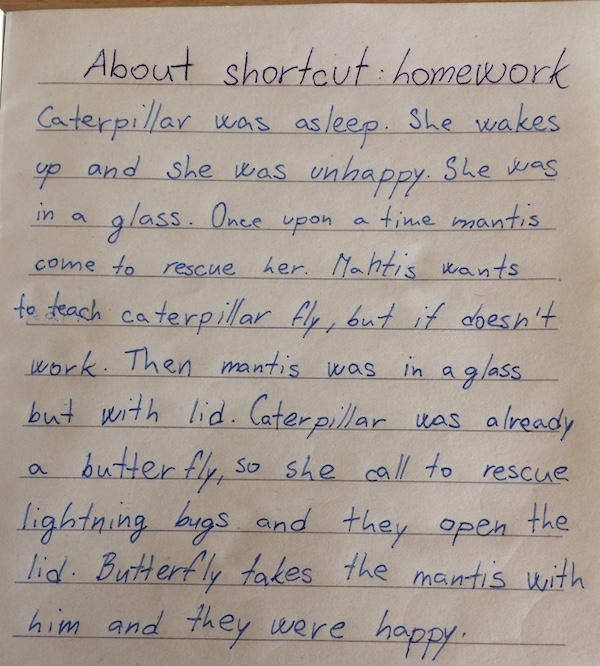 About shortcut: homework
Caterpillar was asleep. She wakes
up and she was unhappy. She was
in a glass. Once upon a time mantis
come to rescue her. Mantis wants
to teach caterpillar fly, but it doesn't
work. Then mantis was in a glass
but with lid. Caterpillar was already
a butterfly, so she call to rescue
lightning bugs and they open the
lid. Butterfly takes the mantis with
him and they were happy.